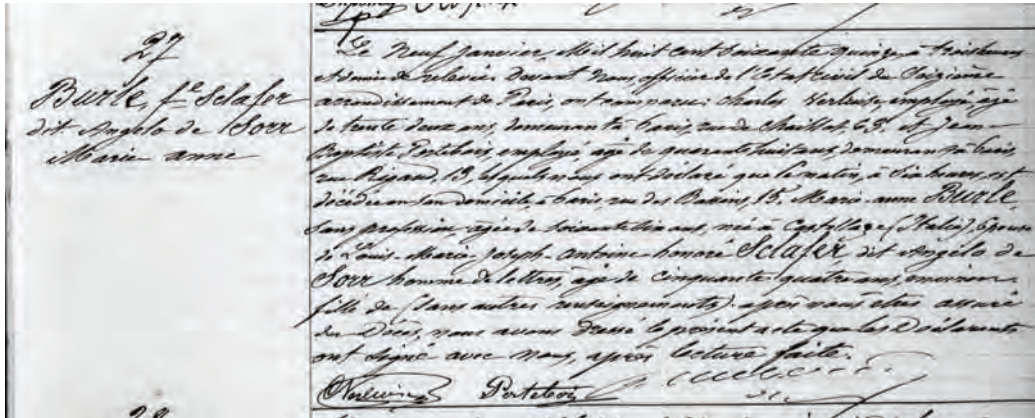 27
Burle, fe Sclafer
dit Angelo de Sorr
Marie anne
Le neuf janvier, Mil huit cent soixante quinze, à trois heures
et demie de relevée. Devant nous, officier de l'Etat civil du Seizième
arrondissement de Paris, ont comparu: Charles employé, âgé
de trente deux ans, demeurant à Paris, rue de Chaillot, et Jean-
Baptiste employé, âgé de quarante huit ans, demeurant à Paris,
rue 13, lesquels nous ont déclaré que ce matin, à six heures, est
décédée en son domicile, à Paris, rue des Bassins, 15, Marie-anne Burle,
sans profession, âgée de soixante ans, née à (Italie), Epouse
de Louis-Marie-Joseph-Antoine-honoré Sclafer, dit Angélo de
Sorr homme de lettres, âgé de cinquante quatre ans, environ
fille de (sans autres renseignements). après nous être assuré
du Décès, nous avons dressé le présent acte que les Déclarants
ont signé avec nous, après lecture faite.
28